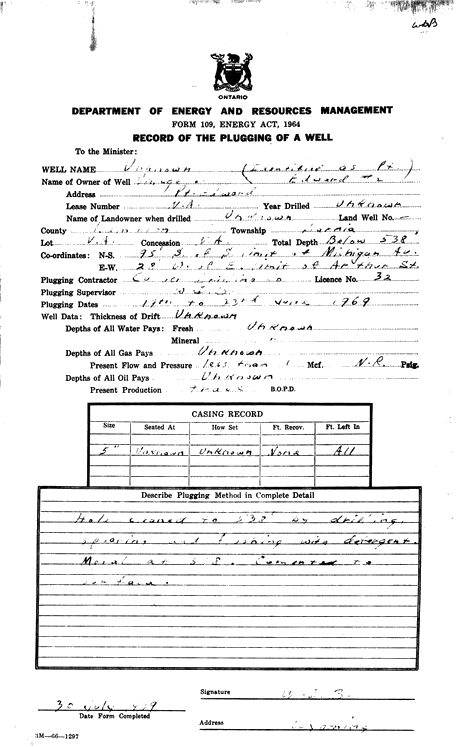 WDB
ONTARIO
DEPARTMENT OF ENERGY AND RESOURCES MANAGEMENT
FORM 109, ENERGY ACT, 1964
RECORD OF THE PLUGGING OF A WELL
To the Minister:
WELL NAME Unknown (Identified as Pt.
Name of Owner of Well Edward #2
Address Pt. Edward
Lease Number N.A. Year Drilled Unknown
Name of Landowner when drilled Unknown Land Well No. -
County Lambton Township Sarnia
Lot N.A. Concession N.A. Total Depth Below 538
Co-ordinates: N-S. 95' S. of limit of Michigan Av.
E-W. 29' W. of E. limit of Arthur St.
Plugging Contractor Licence No. 32
Plugging Supervisor
Plugging Dates 19th to 23rd June 1969
Well Data: Thickness of Drift Unknown
Depths of All Water Pays: Fresh Unknown
Mineral "
Depths of All Gas Pays Unknown
Present Flow and Pressure less than 1 Mcf. N.R. Psig.
Depths of All Oil Pays Unknown
Present Production trace B.O.P.D.
CASING RECORD
Size Seated At How Set Ft. Recov. Ft. Left In
5" Unknown Unknown None All
Describe Plugging Method in Complete Detail
Hole cleaned to 538' by drilling,
spearing and flushing with detergent.
Cemented to
surface.
Signature
30 July
Date Form Completed
Address Wyoming
3M-66-1297